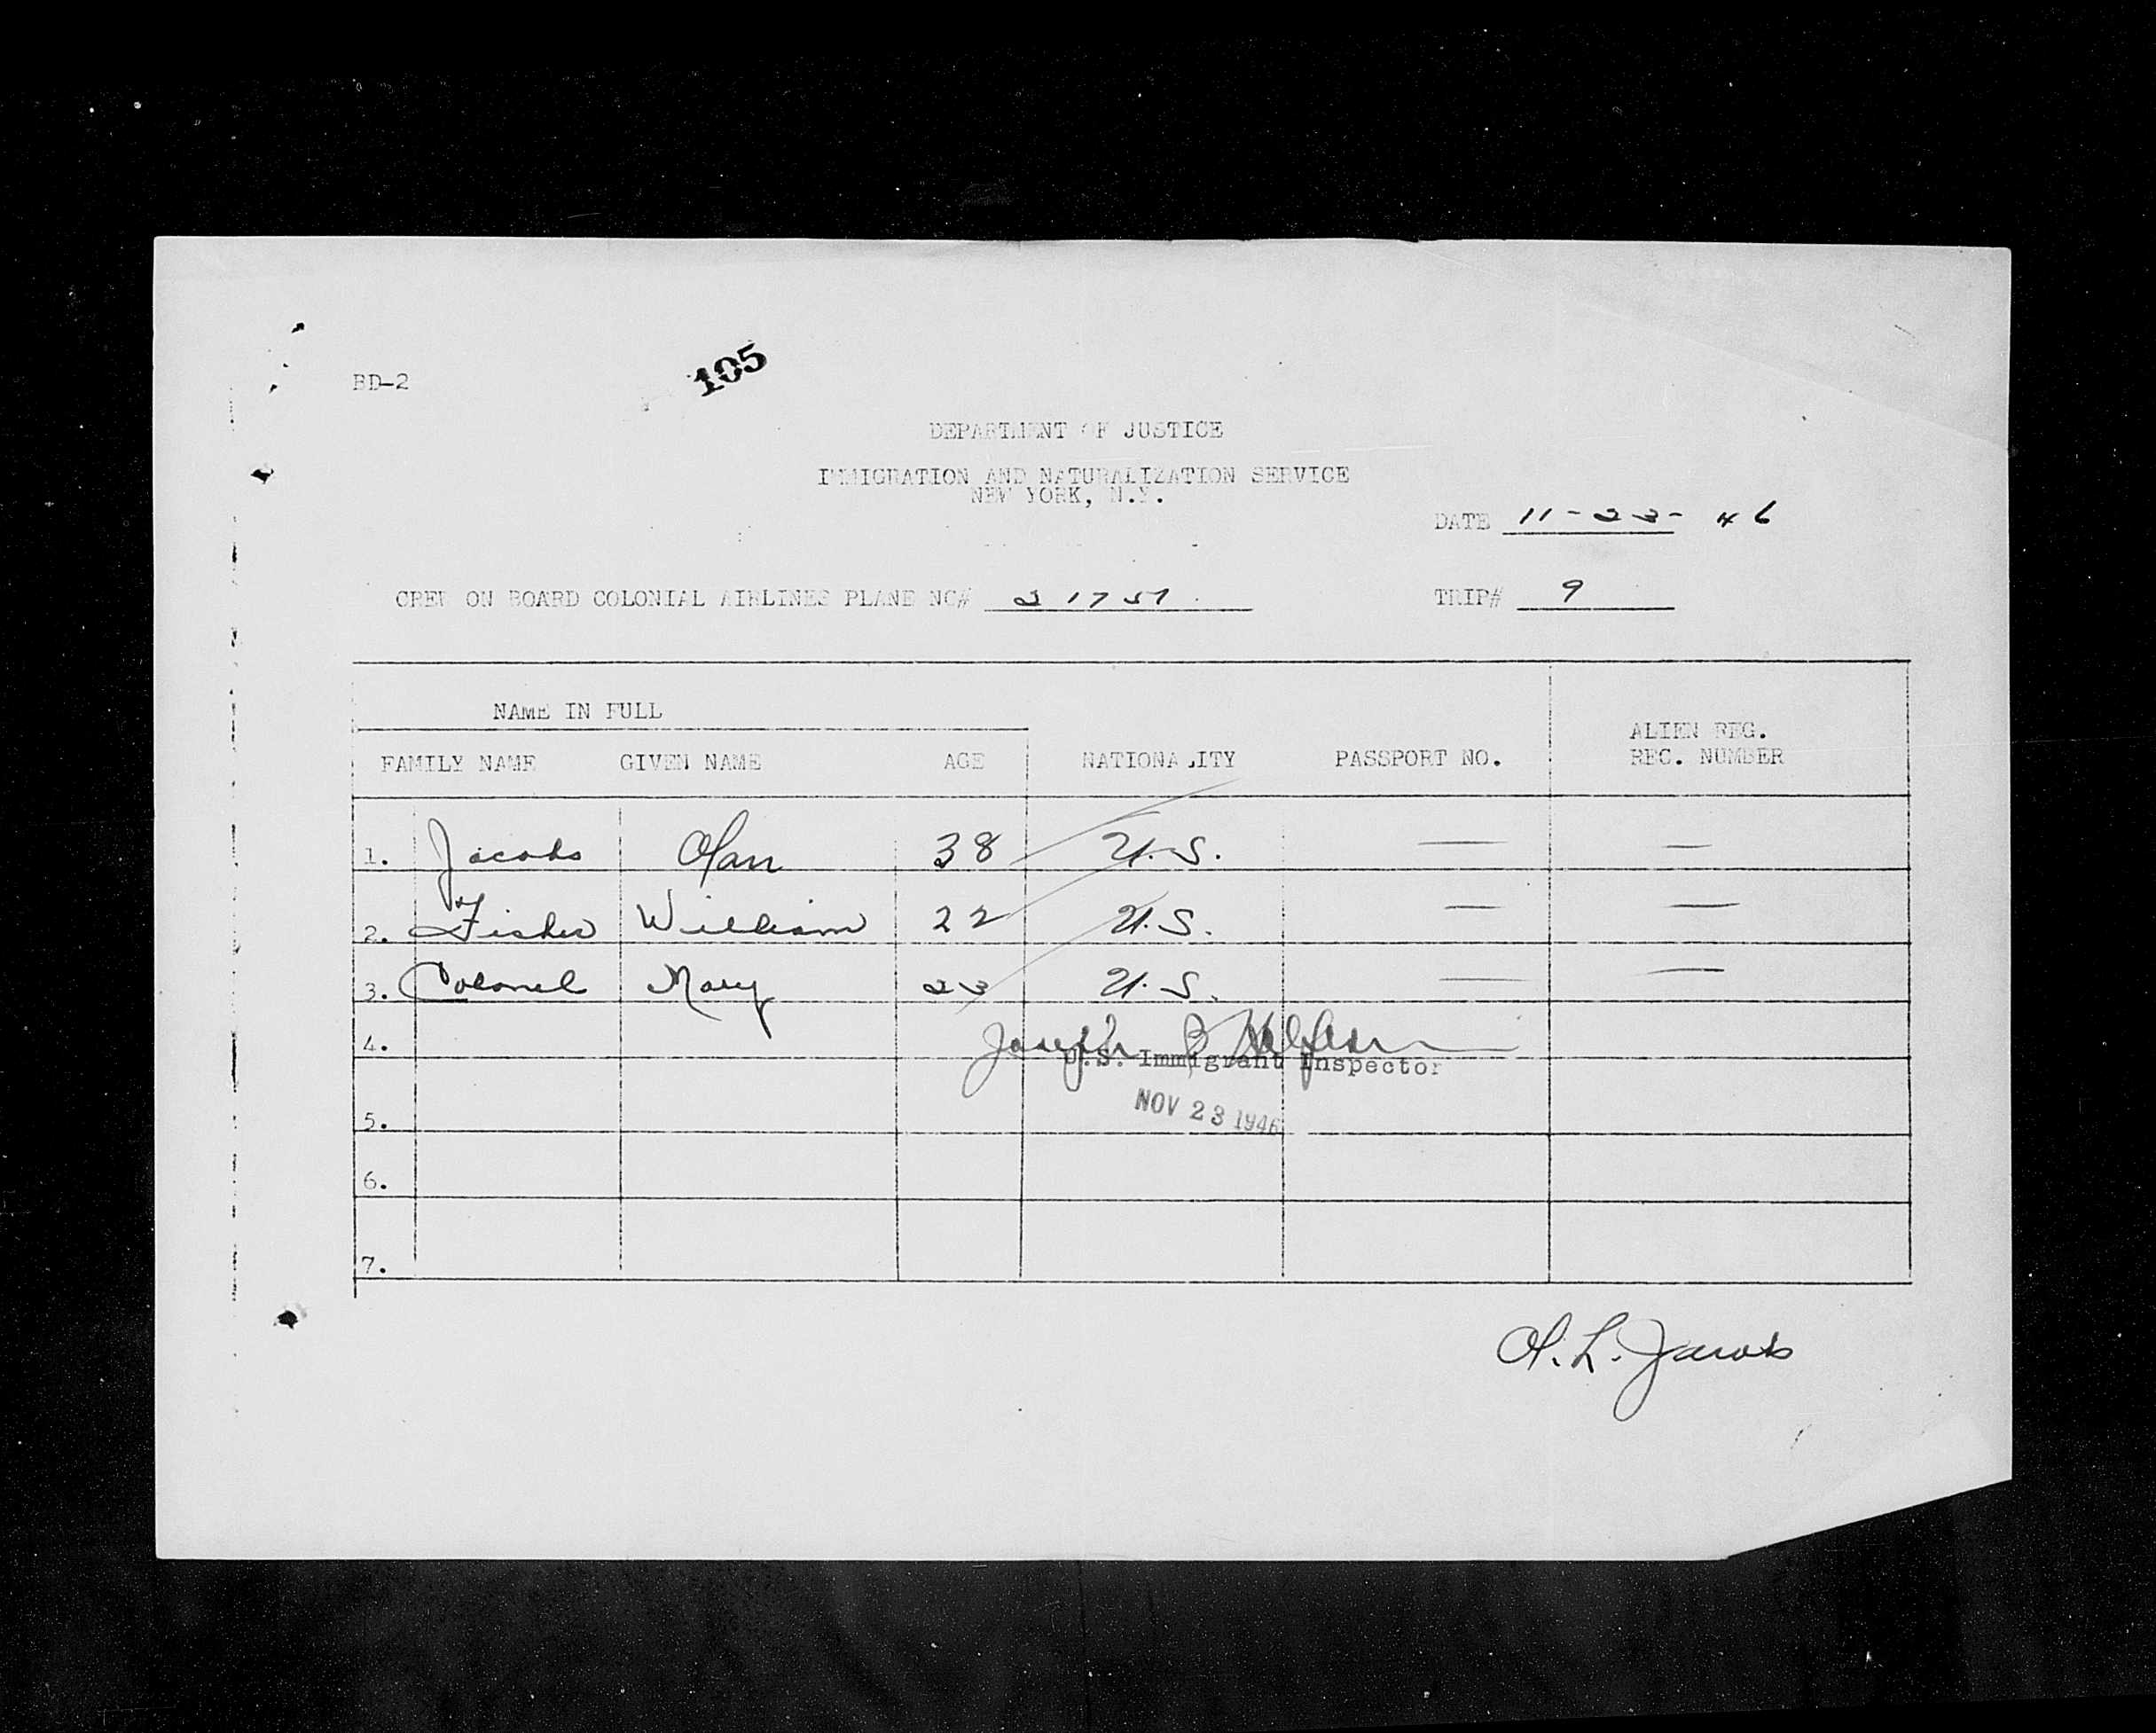 105
BD-2
DEPARTMENT OF JUSTICE
IMMIGRATION AND NATURALIZATION SERVICE
NEW YORK, N.Y.
DATE 11-23-46
CREW ON BOARD COLONIAL AIRLINES PLANE NC# 21751 TRIP# 9
NAME IN FULL
FAMILY NAME GIVEN NAME AGE NATIONALITY PASSPORT NO. ALIEN REG. REC. NUMBER
1. Jacobs Olan 38 U.S. — —
2. Fisher William 22 U.S. — —
3. Colonel Mary 23 U.S. — —
4. Joseph B
U.S. Immigrant Inspector
NOV 23 1946
5.
6.
7.
O. L. Jacobs